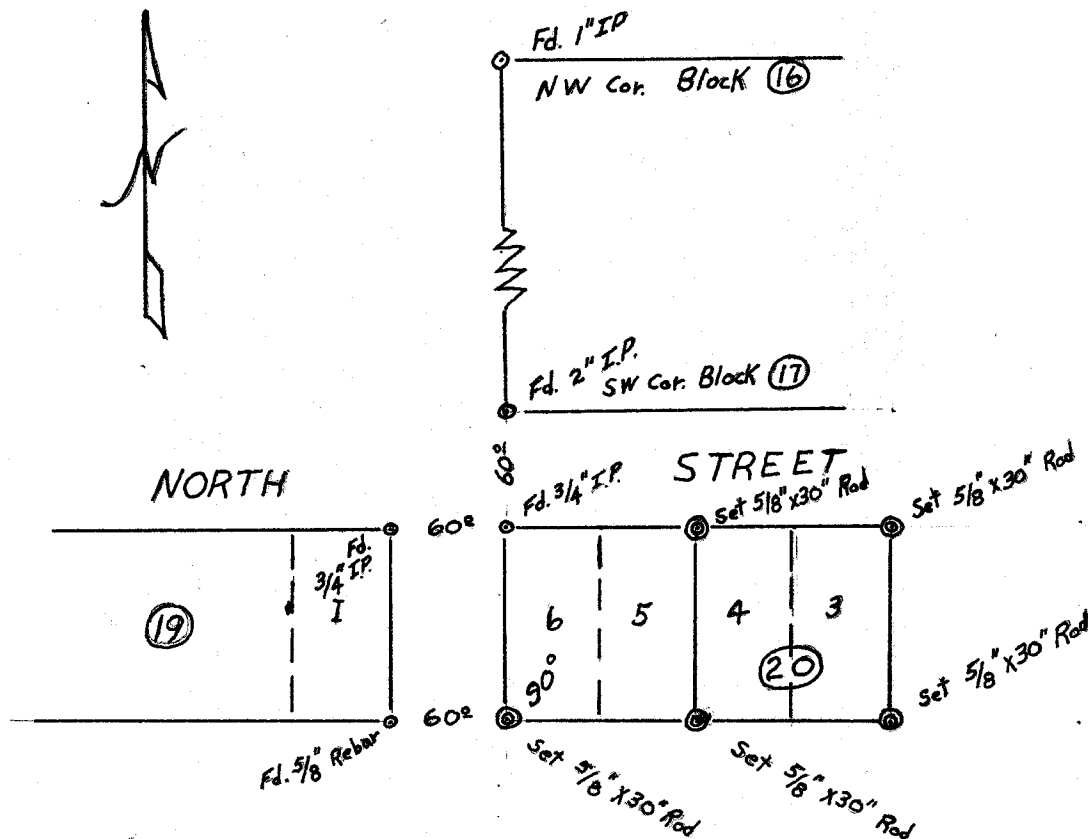 Fd. 1" IP
NW Cor. Block 16
N
Fd. 2" I.P.
SW Cor. Block 17
60º
NORTH STREET
Fd. 3/4" I.P.
Set 5/8" x 30" Rod
Set 5/8" x 30" Rod
60º
Fd.
3/4" I.P.
I
19
6
5
4
3
20
90°
Set 5/8" x 30" Rod
60º
Fd. 5/8" Rebar
Set 5/8" x 30" Rod
Set 5/8" x 30" Rod